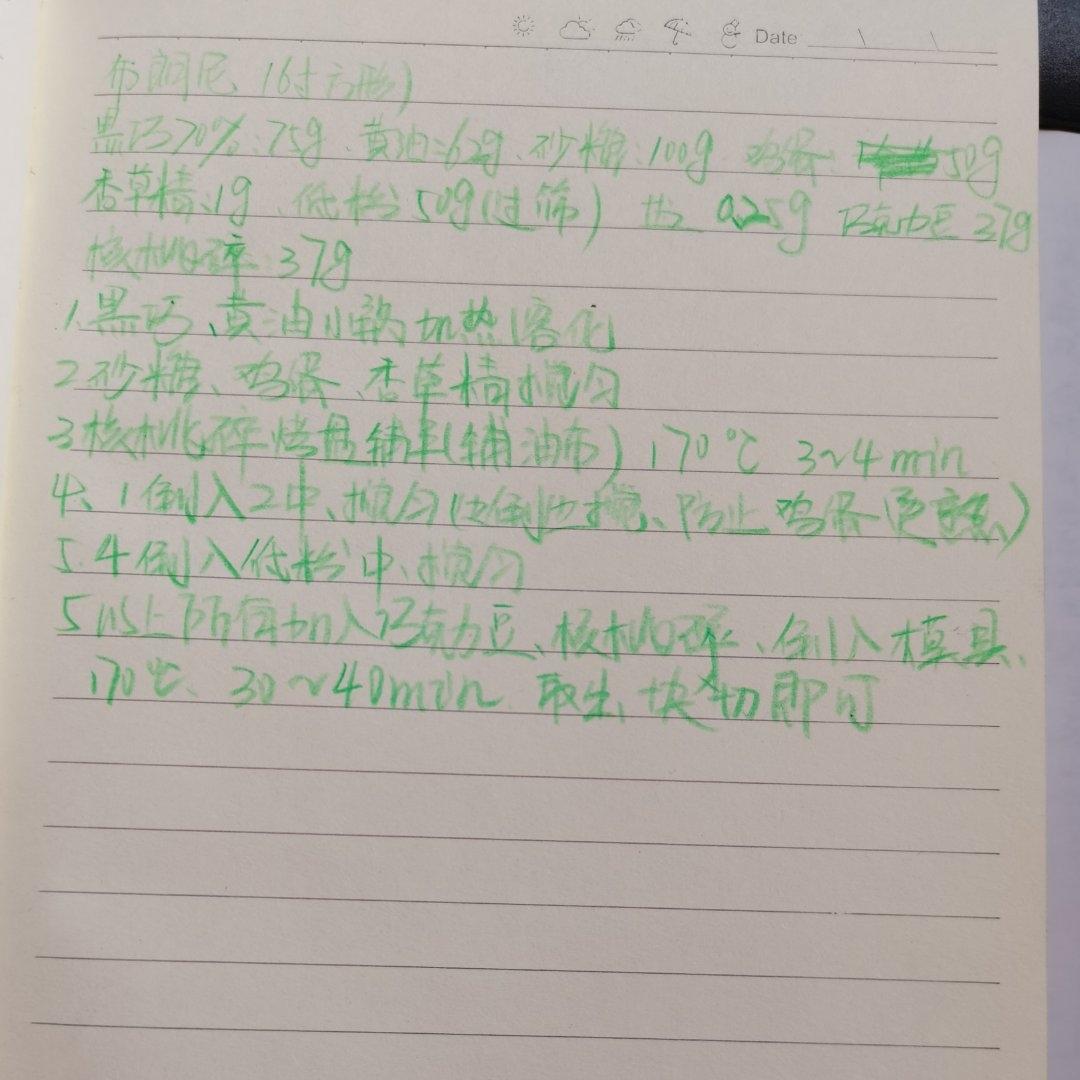 Date
布朗尼 (6寸方形)
黑巧70%:75g、黄油:62g、砂糖:100g 鸡蛋: 50g
香草精:1g、低粉50g(过筛) 盐 0.25g 巧克力豆 37g
核桃碎:37g
1.黑巧、黄油小锅加热溶化
2砂糖、鸡蛋、香草精搅匀
3核桃碎烤盘铺平(铺油布) 170℃ 3~4min
4、1倒入2中、搅匀(边倒边搅、防止鸡蛋烫熟)
5.4倒入低粉中、搅匀
5以上所有加入巧克力豆、核桃碎、倒入模具、
170℃、30~40min 取出、块切即可